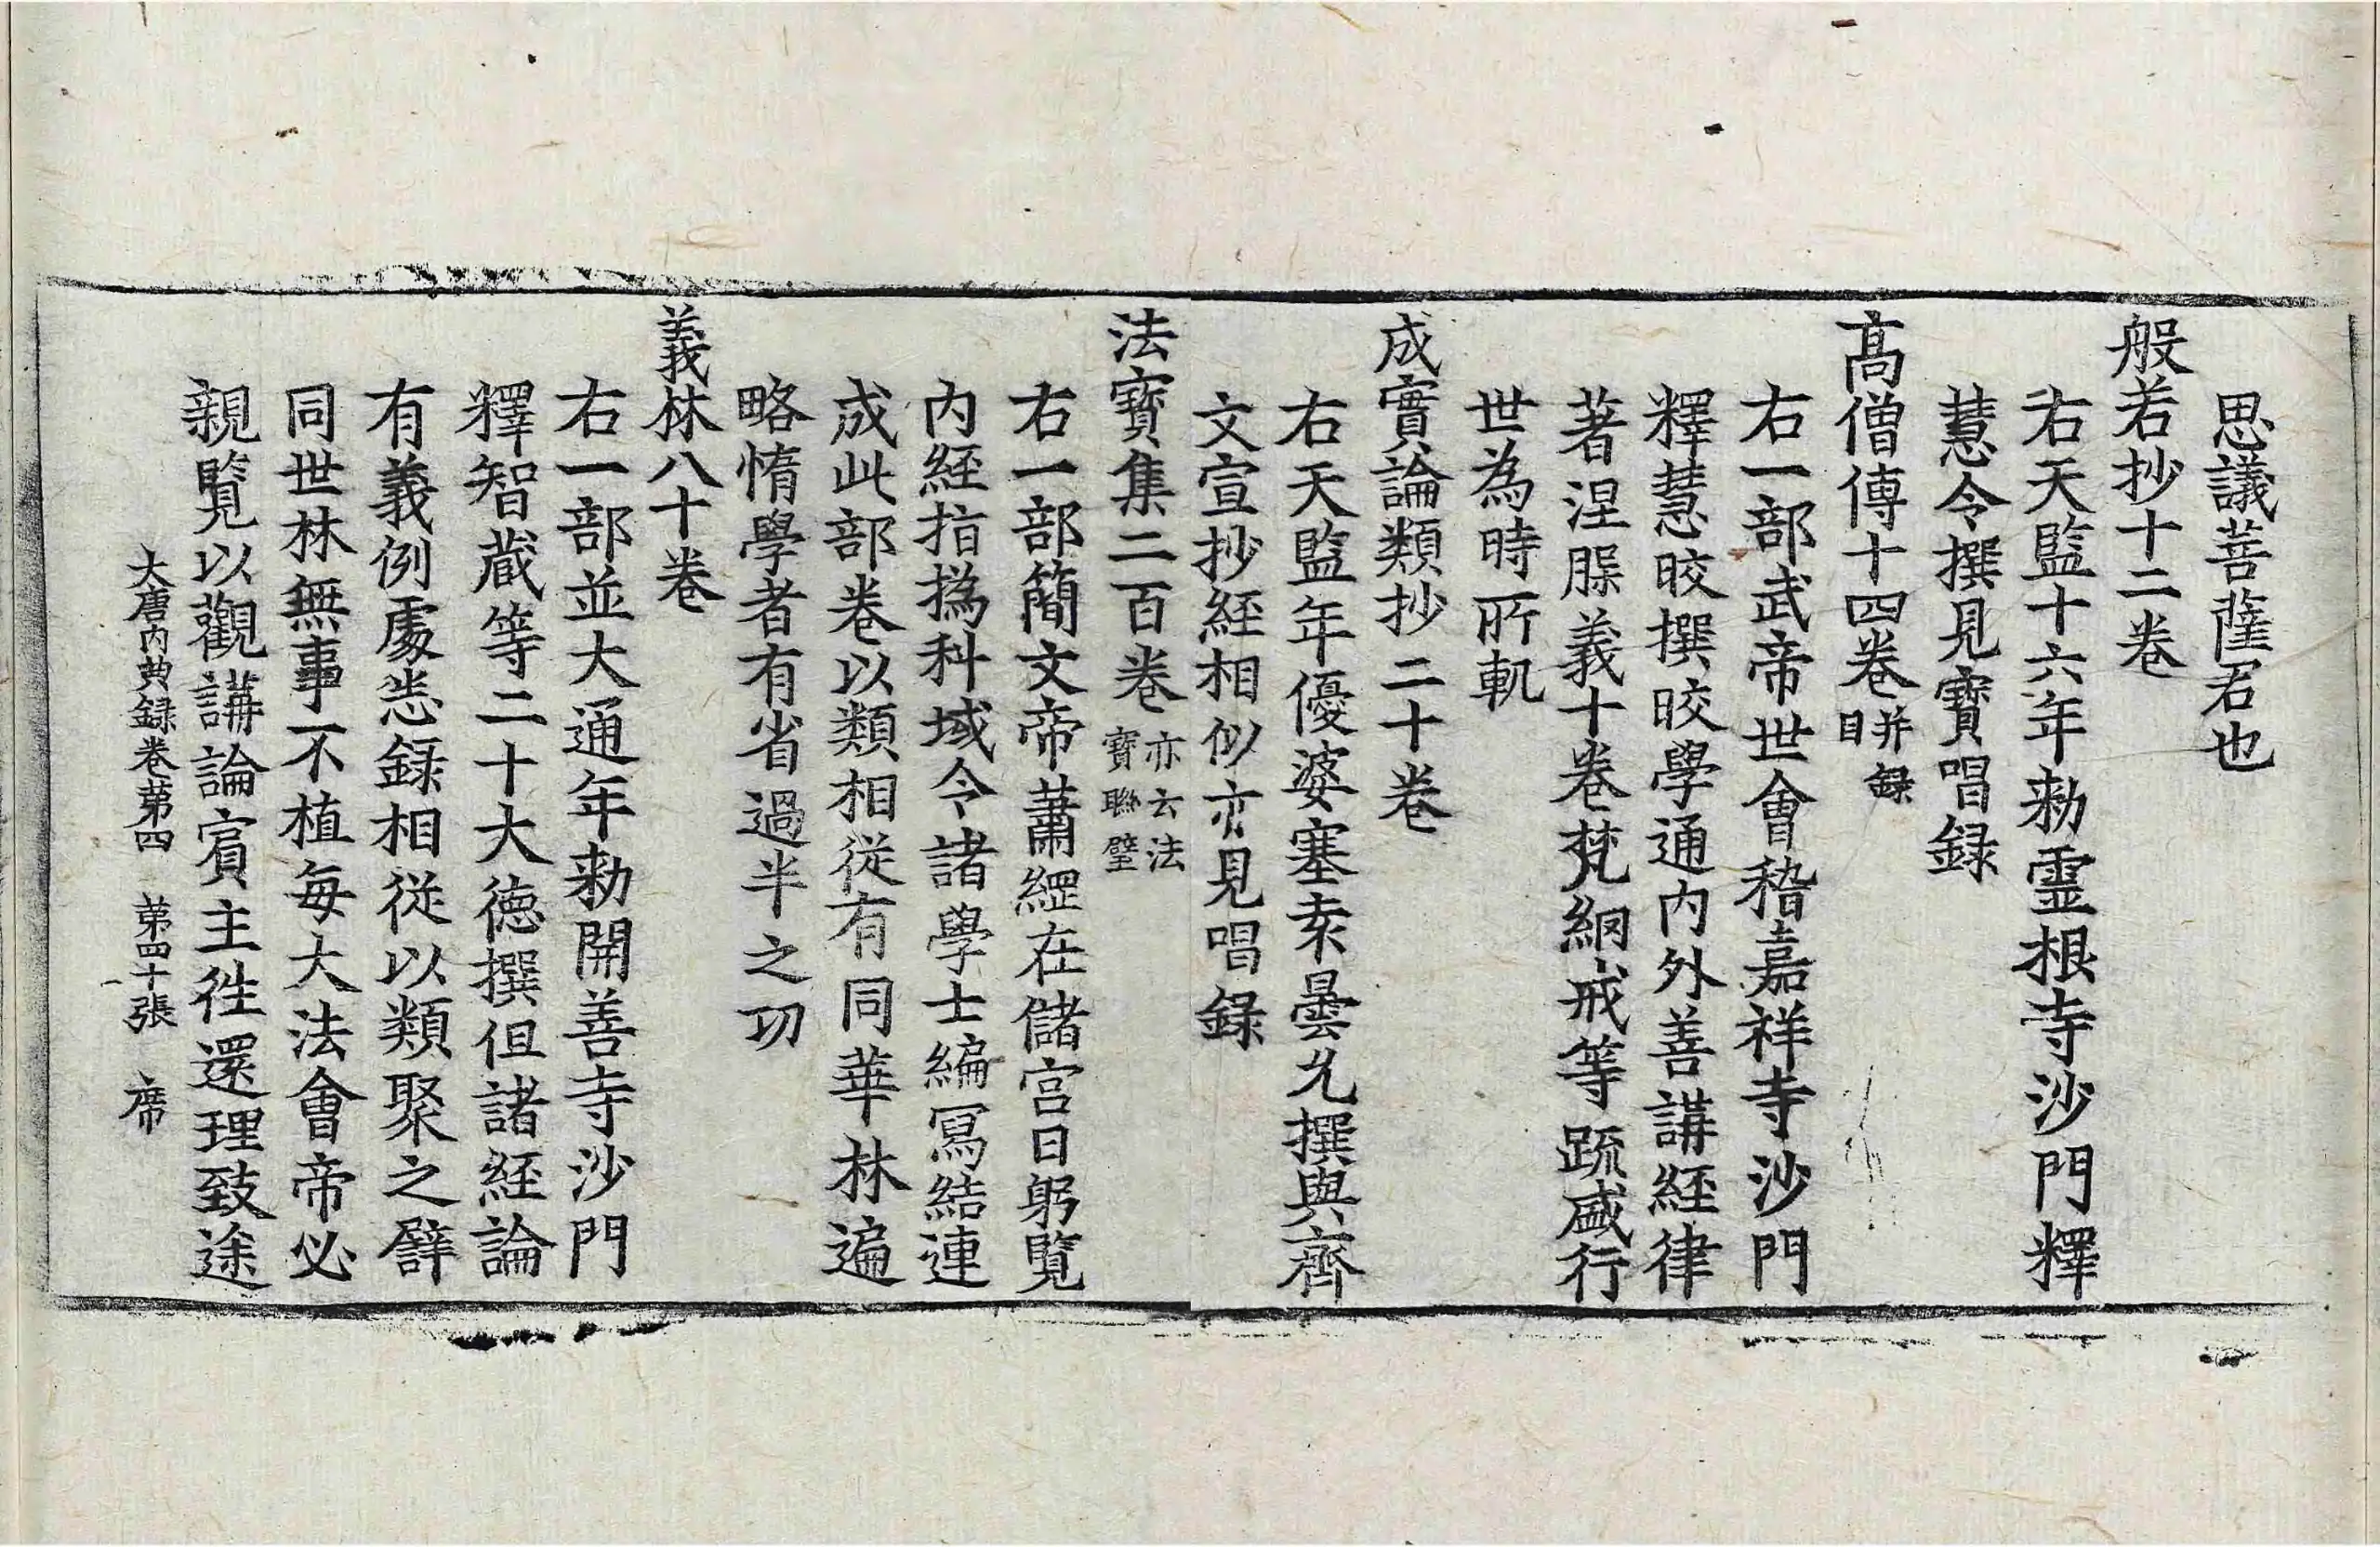 思議菩薩君也
般若抄十二卷
右天監十六年勑靈根寺沙門釋
慧令撰見寶唱録
髙僧傳十四卷并録目
右一部武帝世會稽嘉祥寺沙門
釋慧皎撰皎學通内外善講經律
著涅槃義十卷梵網戒等䟽盛行
世為時所軌
成實論類抄二十卷
右天監年優婆塞袁曇允撰與齊
文宣抄經相似亦見唱録
法寶集二百卷亦云法寶聯璧
右一部簡文帝蕭綱在儲宫日躬覽
内經指撝科域令諸學士編冩結連
成此部卷以類相従有同華林遍
略惰學者有省過半之功
義林八十卷
右一部並大通年勑開善寺沙門
釋智蔵等二十大徳撰但諸經論
有義例處悉録相従以類聚之譬
同世林無事不植每大法會帝必
親覽以觀講論賔主往還理致途
大唐内典録卷苐四　苐四十張　席